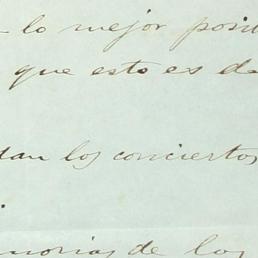 lo mejor posi
que esto es de
dan los conciertos
morias de los